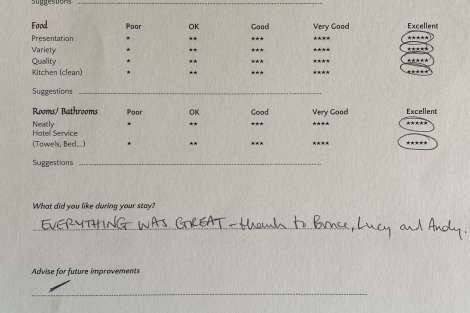 Suggestions
Food Poor OK Good Very Good Excellent
Presentation * ** *** **** *****
Variety * ** *** **** *****
Quality * ** *** **** *****
Kitchen (clean) * ** *** **** *****
Suggestions
Rooms/ Bathrooms Poor OK Good Very Good Excellent
Neatly * ** *** **** *****
Hotel Service
(Towels, Bed,...) * ** *** **** *****
Suggestions
What did you like during your stay?
EVERYTHING WAS GREAT - thanks to , Lucy and Andy.
Advise for future improvements